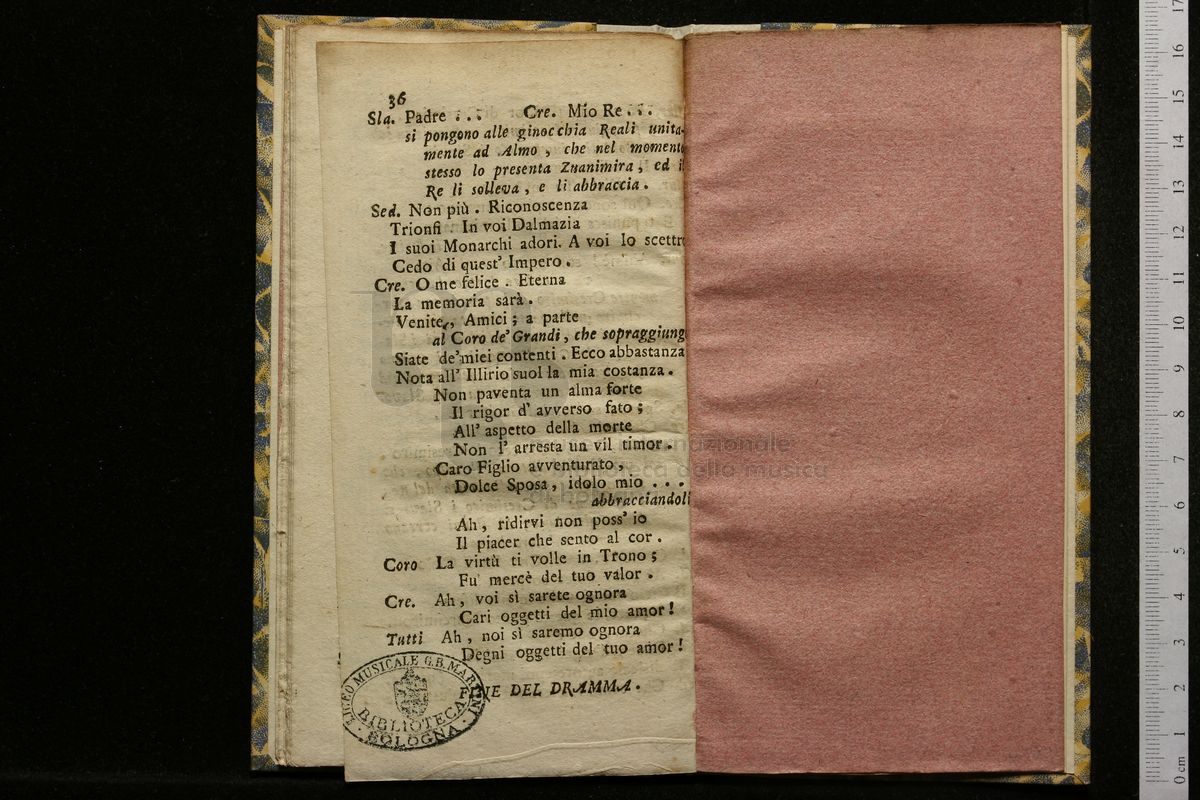 36
Sla. Padre . . . Cre. Mio Re . . .
si pongono alle ginocchia Reali unita-
mente ad Almo , che nel momento
stesso lo presenta Zuanimira , ed il
Re li solleva , e li abbraccia .
Sed. Non più . Riconoscenza
Trionfi In voi Dalmazia
I suoi Monarchi adori. A voi lo scettro
Cedo di quest' Impero .
Cre. O me felice . Eterna
La memoria sarà .
Venite , Amici ; a parte
al Coro de' Grandi , che sopraggiung
Siate de' miei contenti . Ecco abbastanza
Nota all' Illirio suol la mia costanza .
Non paventa un alma forte
Il rigor d' avverso fato ;
All' aspetto della morte
Non l' arresta un vil timor .
Caro Figlio avventurato ,
Dolce Sposa , idolo mio . . .
abbracciandoli
Ah , ridirvi non poss' io
Il piacer che sento al cor .
Coro La virtù ti volle in Trono ;
Fu mercè del tuo valor .
Cre. Ah , voi sì sarete ognora
Cari oggetti del mio amor !
Tutti Ah , noi sì saremo ognora
Degni oggetti del tuo amor !
FINE DEL DRAMMA .
LICEO MUSICALE G.B. MARTINI
BIBLIOTECA
BOLOGNA
nazionale
biblioteca della musica
0 cm 1 2 3 4 5 6 7 8 9 10 11 12 13 14 15 16 17